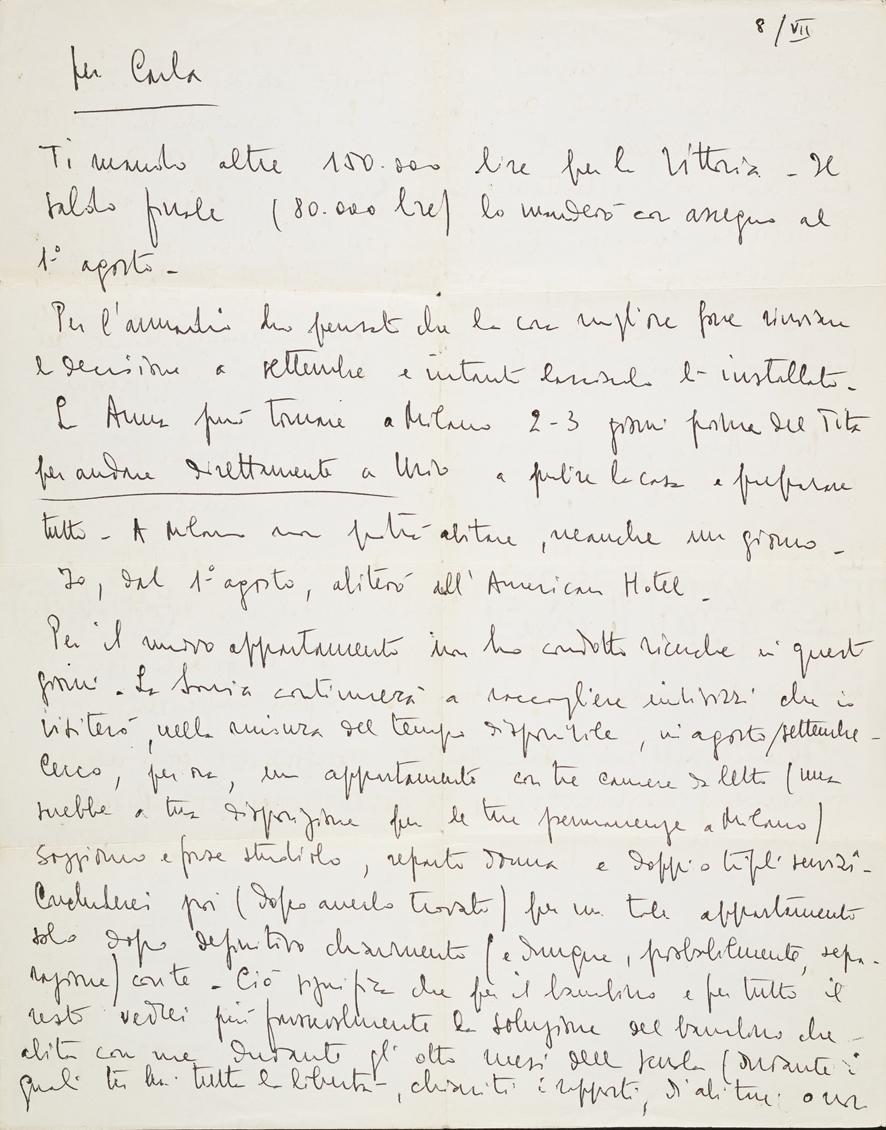 8/VII
per Carla
Ti mando altre 150.000 lire per la Vittoria - Il
saldo finale (80.000 lire) lo manderò con assegno al
1° agosto -
Per l'armadio ho pensato che la cosa migliore fosse rinviare
la decisione a settembre e intanto lasciarlo lì installato -
La Anna può tornare a Milano 2-3 giorni prima del Tita
per andare direttamente a a pulire la casa e preparare
tutto - A Milano non potrà abitare, neanche un giorno -
Io, dal 1° agosto, abiterò all'American Hotel -
Per il nuovo appartamento non ho condotto ricerche in questi
giorni - La Sonia continuerà a raccogliere indirizzi che io
visiterò, nella misura del tempo disponibile, in agosto/settembre -
Cerco, per ora, un appartamento con tre camere da letto (una
sarebbe a tua disposizione per le tue permanenze a Milano)
soggiorno e forse studiolo, reparto donna e doppi o tripli servizi -
Concluderei poi (dopo averlo trovato) per un tale appartamento
solo dopo definitivo chiarimento (e dunque, probabilmente, sepa-
razione) con te - Ciò significa che per il bambino e per tutto il
resto vedrei più favorevolmente la soluzione del bambino che
abita con me durante gli otto mesi della scuola (durante i
quali tu hai tutta la libertà -, chiariti i rapporti, d'abitare o no